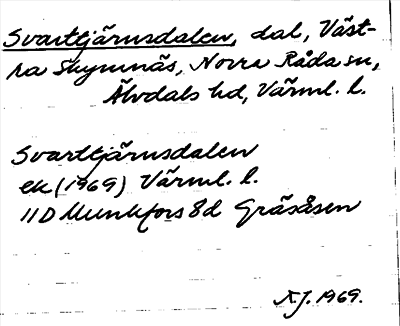 Svarttjärnsdalen, dal, Väst-
ra Skymnäs, Norra Råda sn,
Älvdals hd, Värml. l.
Svarttjärnsdalen
ek (1969) Värml. l.
11D Munkfors 8d Gräsåsen
NJ. 1969.